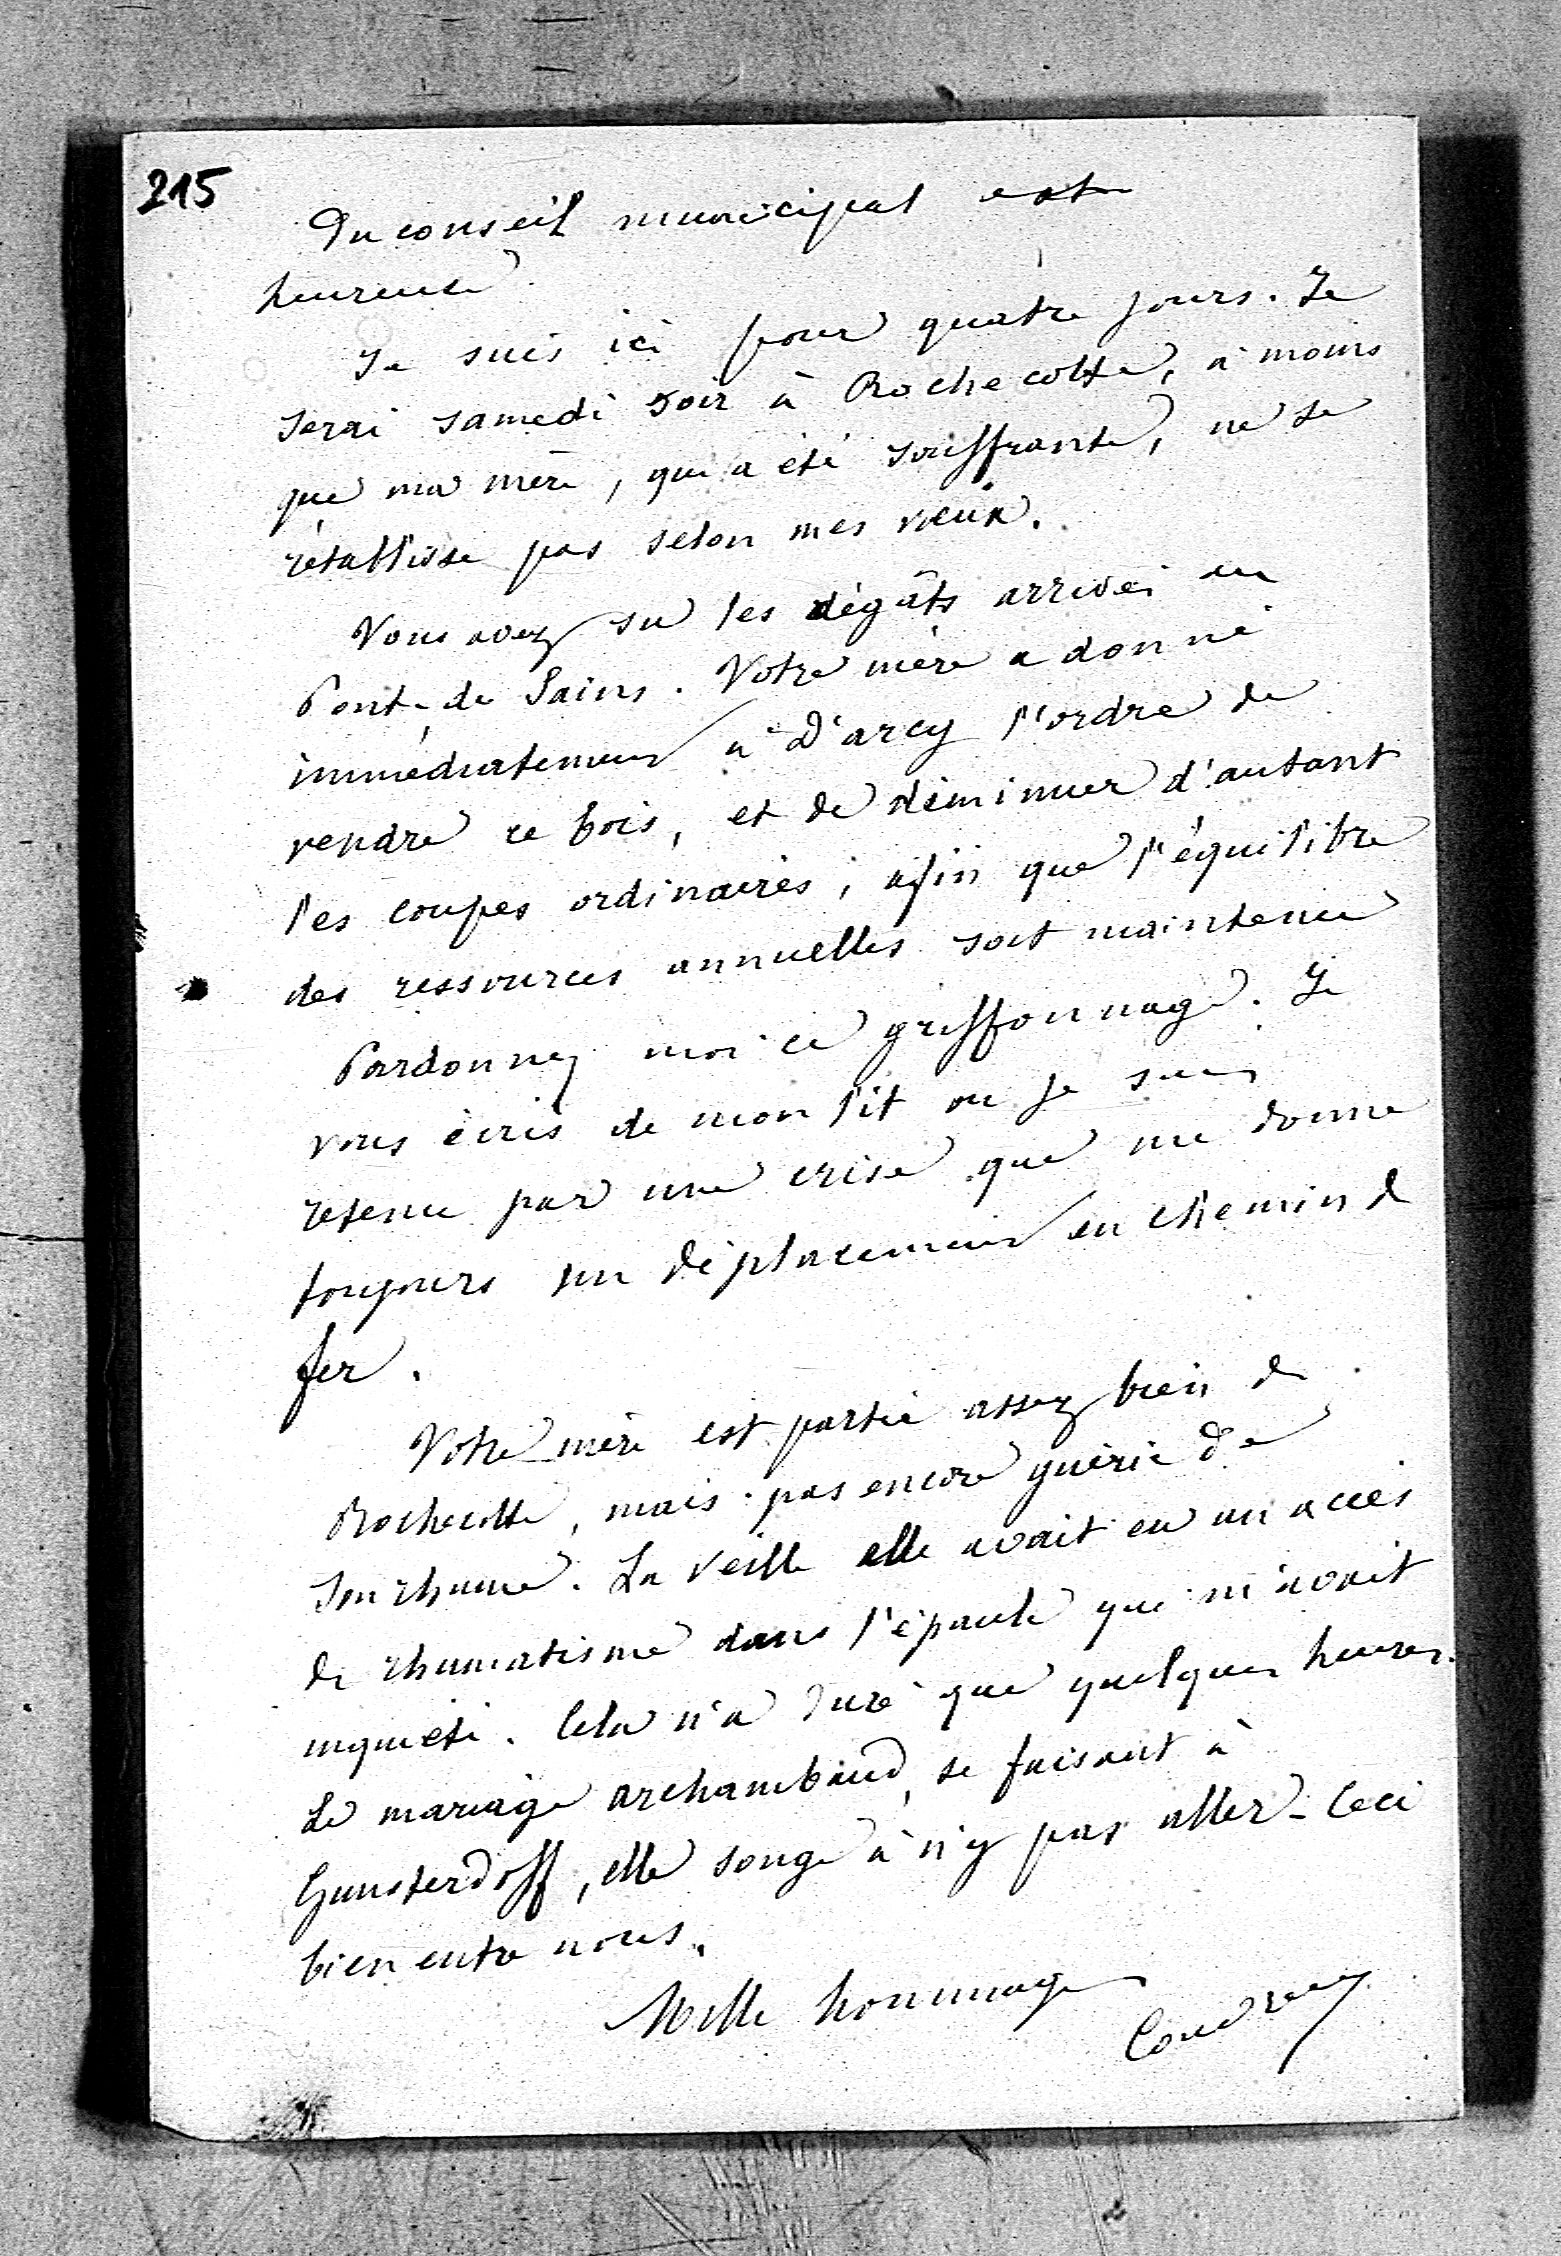 215
Du conseil municipal est
heureuse.
Je suis ici pour quatre jours. Je
serai samedi soir à Rochecotte, à moins
que ma mère, qui a été souffrante, ne se
rétablisse pas selon mes vœux.
Vous avez su les dégâts arrivés en
Pont-de Sains. Votre mère a donné
immédiatement à D'arcy l'ordre de
vendre ce bois, et de diminuer d'autant
les coupes ordinaires, afin que l'équilibre
des ressources annuelles soit maintenu
Pardonnez moi ce griffonnage. Je
vous écris de mon lit ou je suis
retenu par une crise que me donne
toujours un déplacement en chemin de
fer.
Votre mère est partie assez bien de
Rochecotte, mais pas encore guérie de
son rhume. La veille elle avait eu un accès
de rhumatisme dans l'épaule qui m'avait
inquiété. Cela n'a duré que quelques heures.
Le mariage archambaud, se faisant à
Gunsterdoff, elle songe à n'y pas aller. Ceci
bien entre nous.
Mille hommages